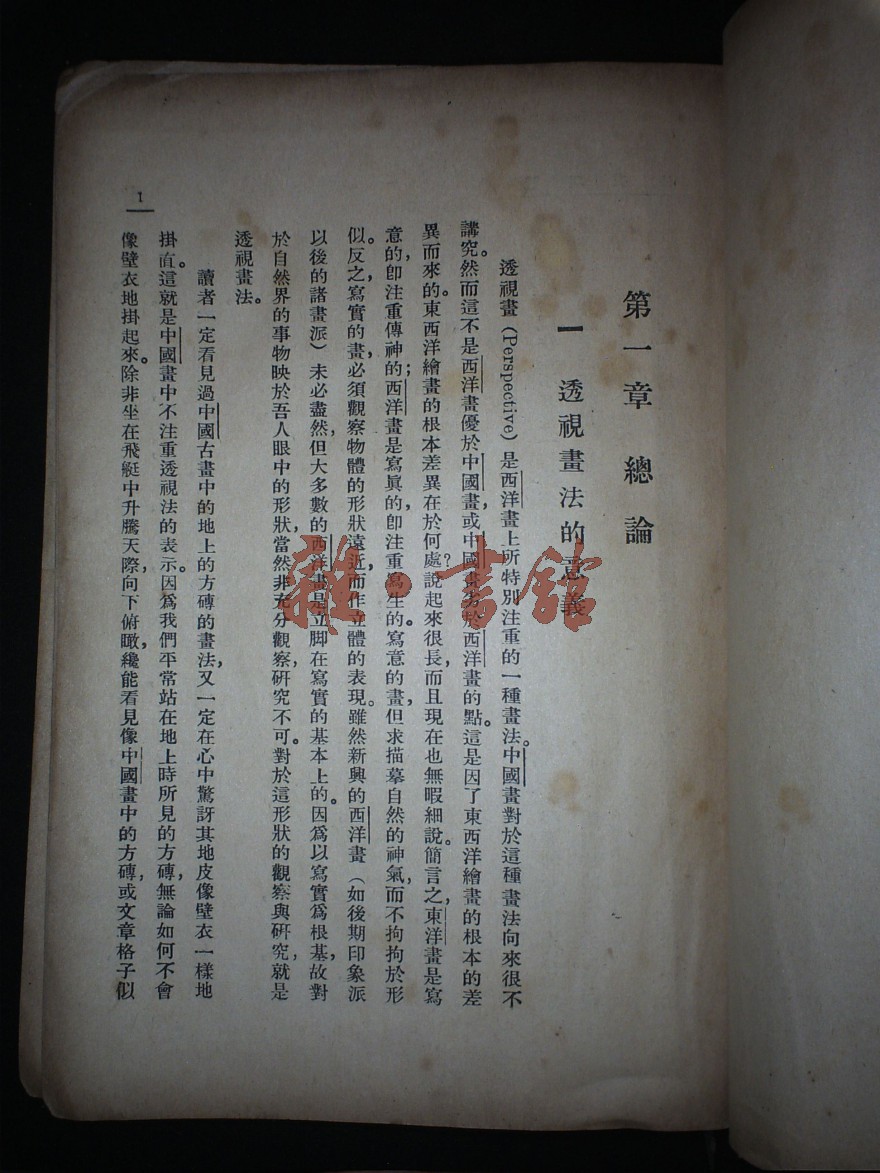 第一章 總論
一 透視畫法的意義
透視畫(Perspective)是西洋畫上所特別注重的一種畫法。中國畫對於這種畫法向來很不
講究。然而這不是西洋畫優於中國畫,或中國畫劣於西洋畫的點。這是因了東西洋繪畫的根本的差
異而來的。東西洋繪畫的根本差異在於何處?說起來很長,而且現在也無暇細說。簡言之,東洋畫是寫
意的,卽注重傳神的;西洋畫是寫眞的,卽注重寫生的。寫意的畫,但求描摹自然的神氣,而不拘拘於形
似。反之,寫實的畫,必須觀察物體的形狀遠近,而作立體的表現。雖然新興的西洋畫(如後期印象派
以後的諸畫派)未必盡然,但大多數的西洋畫是立脚在寫實的基本上的。因爲以寫實爲根基,故對
於自然界的事物映於吾人眼中的形狀,當然非充分觀察研究不可。對於這形狀的觀察與研究,就是
透視畫法。
讀者一定看見過中國古畫中的地上的方磚的畫法,又一定在心中驚訝其地皮像壁衣一樣地
掛直。這就是中國畫中不注重透視法的表示。因爲我們平常站在地上時所見的方磚,無論如何不會
像壁衣地掛起來。除非坐在飛艇中升騰天際,向下俯瞰,纔能看見像中國畫中的方磚,或文章格子似
1
雜·書館